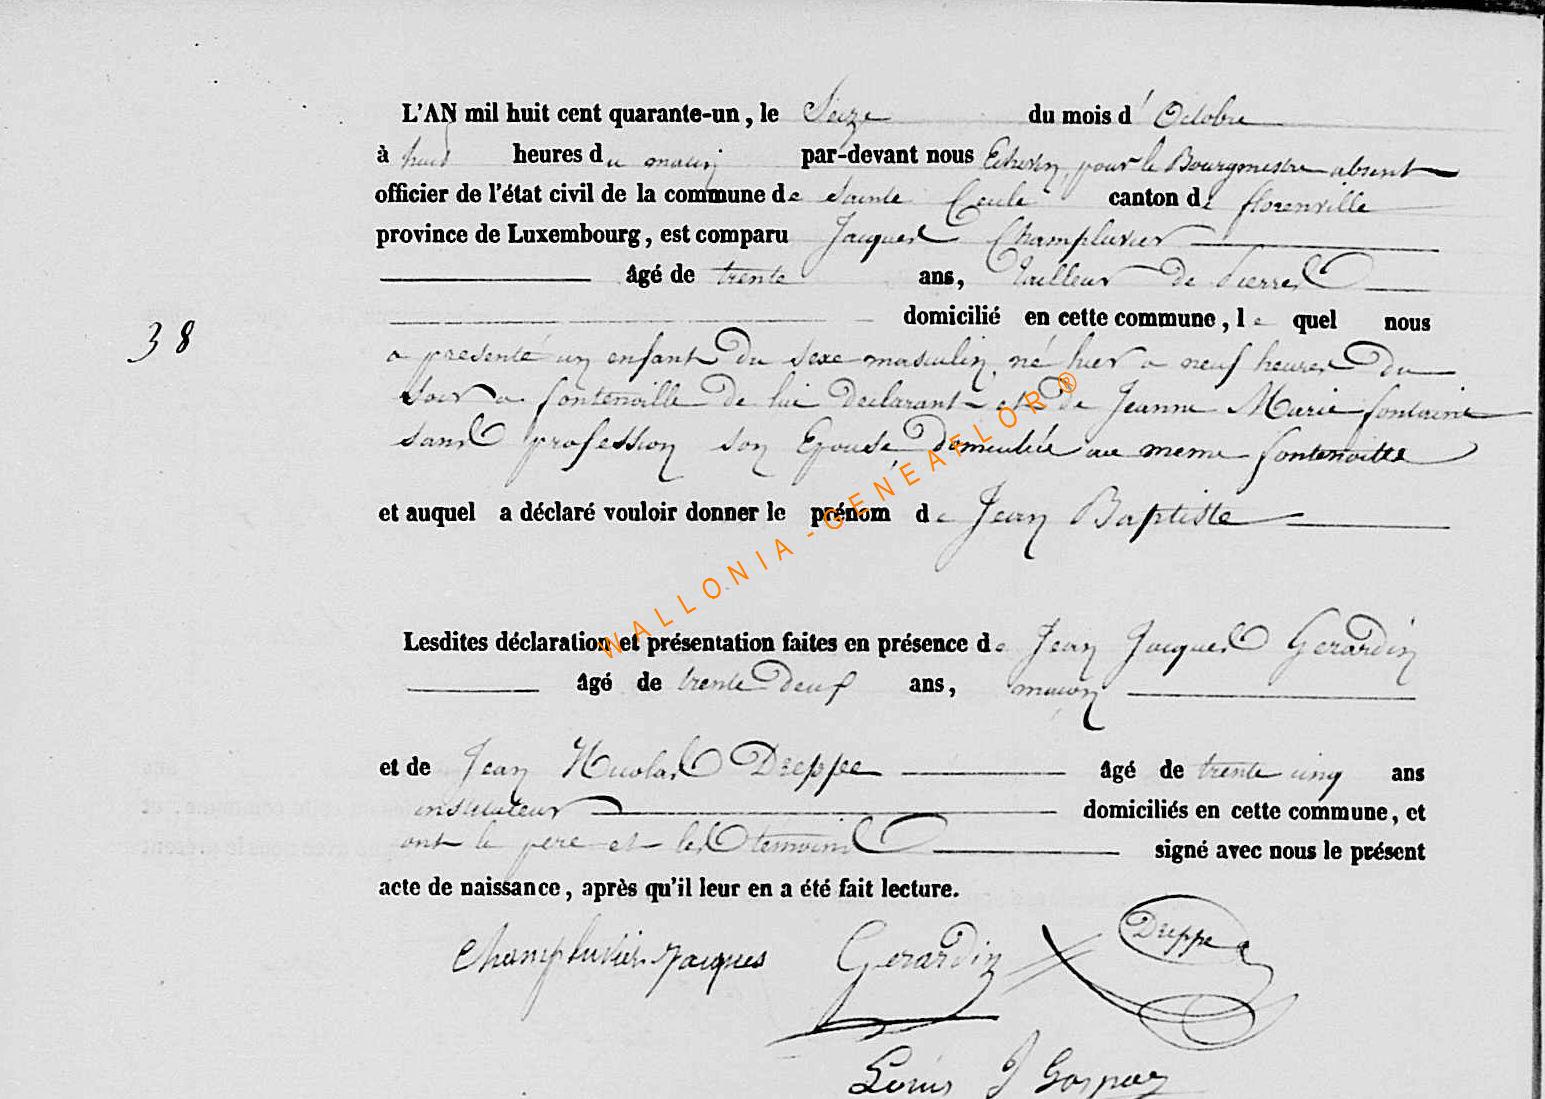 L'AN mil huit cent quarante-un, le Seize du mois d' Octobre
à huit heures du matin par-devant nous Echevin, pour le Bourgmestre absent
officier de l'état civil de la commune de Sainte Cecile canton de florenville
province de Luxembourg, est comparu Jacques Champluvier
âgé de trente ans, tailleur de Pierres
domicilié en cette commune, le quel nous
38
a présenté un enfant du sexe masculin, né hier a neuf heures du
soir a fontenoille de lui declarant et de Jeanne Marie fontaine
sans profession son Epouse domiciliée au meme fontenoille
et auquel a déclaré vouloir donner le prénom de Jean Baptiste
WALLONIA-GENEAFLOR®
Lesdites déclaration et présentation faites en présence de Jean Jacques Gerardin
âgé de trente deux ans, maçon
et de Jean Nicolas Dreppe âgé de trente cinq ans
instituteur domiciliés en cette commune, et
ont le père et les temoins signé avec nous le présent
acte de naissance, après qu'il leur en a été fait lecture.
Champluvier Jacques Gerardin Dreppe
Louis J